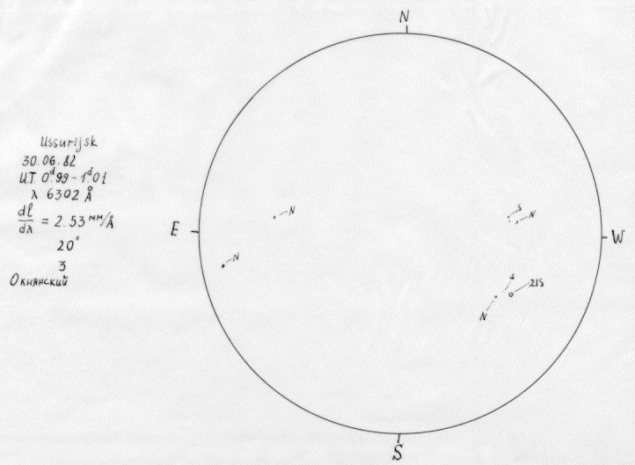 N
Ussurijsk
30.06.82
UT 0.ᵈ99-1.ᵈ01
λ 6302 Å
dl/dλ = 2.53 мм/Å
20"
3
Окнянский
E
W
S
N
N
s
N
s
21S
N